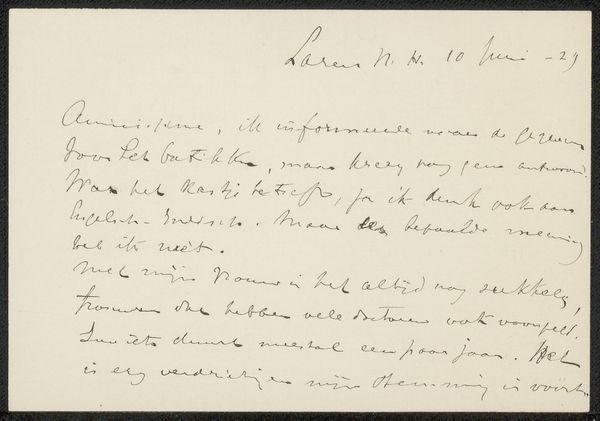 Laren N. H. 10 Juni - 29
Amicissime, ik informeerde naar de gegevens
voor het batikken, maar kreeg nog geen antwoord.
Wat het kastje betreft, ja ik denk ook aan
Engelsch-Indisch. Maar een bepaalde meening
heb ik niet.
Met mijn vrouw is het altijd nog sukkelen,
trouwens dat hebben vele doctoren ook voorspeld.
Zoo iets duurt meestal een paar jaar. Het
is erg verdrietig en mijn stemming is